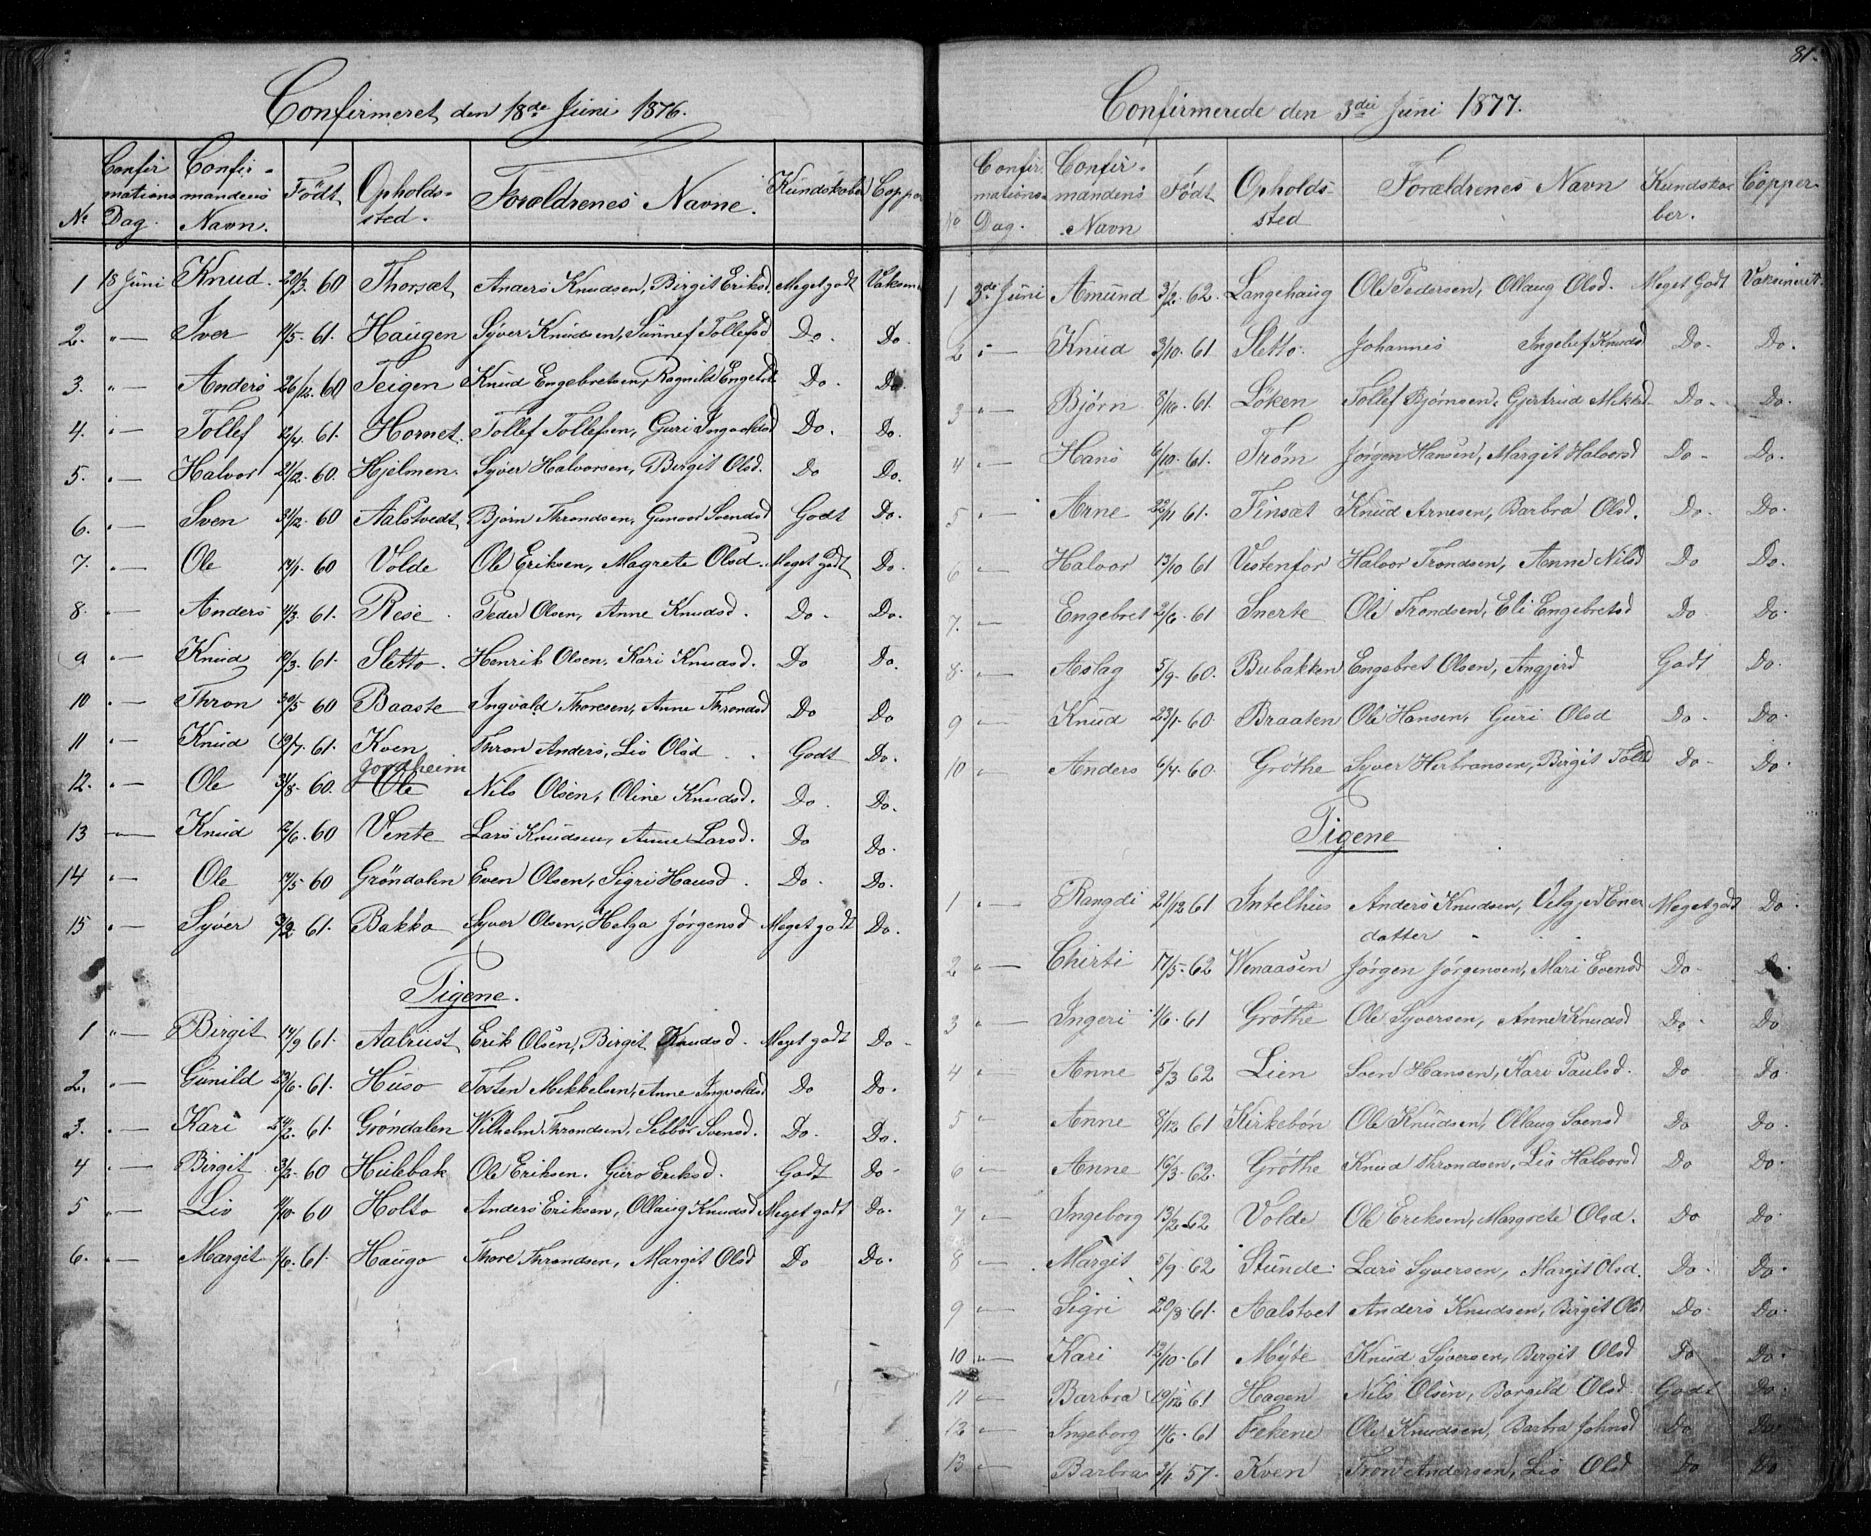 Confirmeret den 18de Juni 1876.
No Confirmations Dag. Confirmandens Navn. Født Opholdssted. Forældrenes Navne. Kundskaber Copper
1 18 Juni Knud 20/3. 60 Thorsæt Anders Knudsen, Birgit Eriksd. Meget godt Vaksin
2. "— Iver 11/5. 61. Haugen Syver Knudsen, Sünnef Tollefsd Do. Do.
3. "— Anders 26/12. 60 Teigen Knud Engebretsen, Ragnild Engebr Do. Do
4. "— Tollef 12/4. 61. Hornet. Tollef Tollefsen, Guri Ingvaldsd Do. Do.
5. "— Halvor 21/12. 60. Hjelmen. Syver Halvorsen, Birgit Olsd. Do Do.
6. "— Sven 31/12. 60 Aalstvedt Bjørn Throndsen, Gunvor Svendsd Godt Do.
7. "— Ole 60 Volde Ole Eriksen, Magrete Olsd. Meget godt Do.
8. "— Anders 11/3. 61. Rese Peder Olsen, Anne Knudsd. Do. Do.
9 "— Knud 61. Sletto. Henrik Olsen, Kari Knudsd. Do Do.
10 "— Thron 30/5 60 Baaste Ingvald Thoresen, Anne Throndsd Do Do
11 "— Knud 19/7. 61. Kven Thron Anders, Liv Olsd Godt Do.
12. "— Ole 31/8. 60. Gordheim Nils Olsen, Oline Knudsd. Do. Do.
13 "— Knud 60 Vente Lars Knudsen, Anne Larsd. Do Do.
14 "— Ole 60 Grøndalen Even Olsen, Sigri Hansd. Do. Do.
15 "— Syver 61. Bakko Syver Olsen, Helga Jørgensd Meget godt Do.
Tigene.
1 "— Birgit 14/9 61. Aalrust Erik Olsen, Birgit Knudsd. Meget godt Do.
2. "— Gunild 23/6. 61. Huso Torsten Mikkelsen, Anne Ingvoldsd Do Do.
3. "— Kari 24/2. 61. Grøndalen Wilhelm Throndsen, Selbør Svensd. Do. Do.
4 "— Birgit 3/2. 60 Hulebak Ole Eriksen. Guro Eriksd. Godt Do.
5 "— Liv 60 Holto Anders Eriksen, Ollaug Knudsd Meget godt Do.
6. "— Margit 61. Haugo Thore Throndsen, Margit Olsd Do Do.
81.
Confirmerede den 3die Juni 1877.
No Confirmations-Dag. Confirmandens Navn Født Opholdssted Forældrenes Navn Kundskaber. Copper
1 3die Juni Amund 3/2. 62. Langehaug Ole Pedersen, Ollaug Olsd. Meget Godt Vaksineret.
2 "— Knud 3/10. 61. Sletto. Johannes Ingelef Knudsd Do. Do.
3 "— Bjørn 8/10. 61. Løken Tollef Bjørnsen, Gjertrud Mikkd Do. Do.
4 "— Hans 6/10. 61. Trøm Jørgen Hansen, Margit Halvorsd Do. Do.
5 "— Arne 22/11 61. Finsæt Knud Arnesen, Barbra Olsd. Do. Do.
6 "— Halvor 13/10 61 Vestenfor Halvor Trondsen, Anne Nilsd Do Do.
7. "— Engebret 2/6. 61 Snerte Ole Trondsen, Eli Engebretsd Do Do.
8. "— Aslag 5/9. 60. Bubakken Engebret Olsen, Angjerd Godt Do.
9 "— Knud 23/1. 60. Braaten Ole Hansen, Guri Olsd Do. Do.
10 "— Anders 6/4. 60. Grøthe Syver Herbransen, Birgit Tollefsd Do. Do.
Tigene
1 "— Rangdi 21/12 61 Intelhus Anders Knudsen, Velgjerd Ener Meget godt Do
datter
2 "— Chirti 17/5. 62 Wenaasen Jørgen Jørgensen, Mari Evensd Do. Do.
3 "— Ingeri 61 Grøthe Ole Syversen, Anne Knudsd Do. Do
4 "— Anne 5/3 62 Lien Sven Hansen, Kari Paulsd. Do Do.
5 "— Anne 8/12 61 Kirkebøn Ole Knudsen, Ollaug Svensd Do Do.
6 "— Anne 16/3. 62. Grøthe Knud Throndsen, Liv Halvorsd Do Do.
7 "— Ingeborg 13/2 62 Volde Ole Eriksen, Margrete Olsd. Do Do.
8 "— Margit 5/9. 62 Stunde. Lars Syversen, Margit Olsd. Do. Do.
9 "— Sigri 20/8 61. Aalstvet Anders Knudsen, Birgit Ols Do. Do.
10 "— Kari 12/10. 61 Myte Knud Syversen, Birgit Olsd Do Do.
11 "— Barbra 19/12 61 Hagen Nils Olsen, Borgild Olsd. Godt Do.
12 "— Ingeborg 11/6. 61 Fekene Ole Knudsen, Barbra Johnsd Do Do.
13 "— Barbra 3/1. 57. Kven Tron Andersen, Liv Olsd Do Do